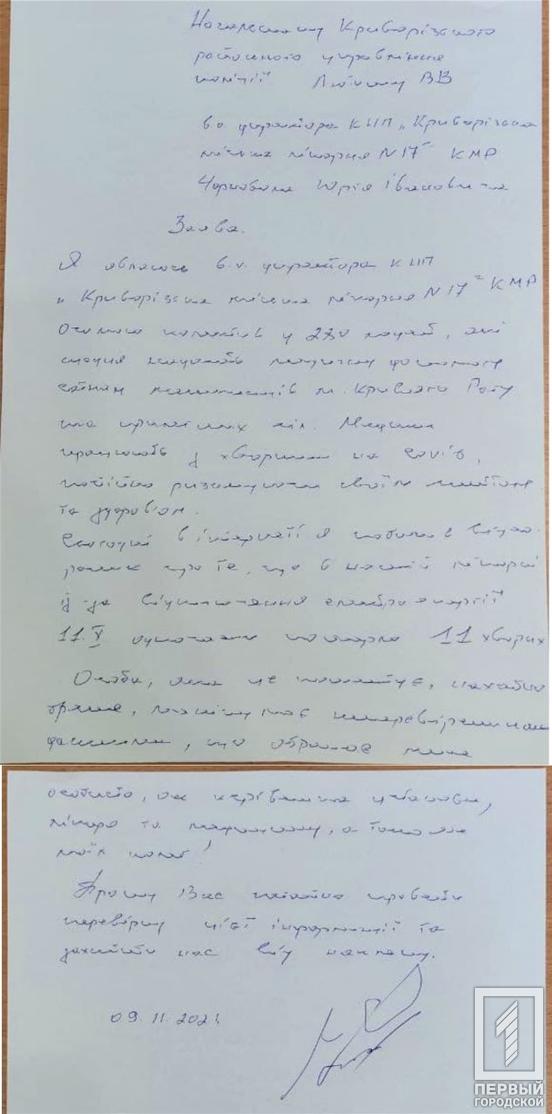 Начальнику Криворізського
районного управління
поліції Любчику ВВ
в.о. директора КНП „Криворізька
міська лікарня №17" КМР
Чорновола Юрія Івановича
Заява.
Я являюсь в.о. директора КНП
„Криворізька міська лікарня №17" КМР
Очолюю колектив у 280 людей, які
сьогодні надають медичну допомогу
мешканцям м. Кривого Рогу
та прилеглих Медики
працюють з хворими на covid,
постійно ризикуючи своїм життям
та здоров'ям.
Сьогодні в інтернеті я побачив
про те, що в нашій лікарні
із-за відключення електроенергії
11.X одночасно померло 11 хворих
Особа, яка це коментує, нахабно
бреше, маніпулює неперевіреними
даними, що ображає мене
особисто, як керівника установи,
лікаря та людину, а також
моїх колег!
Прошу Вас негайно провести
перевірку цієї інформації та
захистити нас від наклепу.
09.11.2021
1
ПЕРВЫЙ
ГОРОДСКОЙ